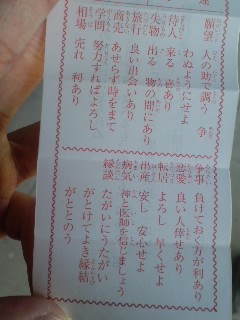 願望 人の助で調う 争
わぬようにせよ
待人 来る 喜あり
失物 出る 物の間にあり
旅行 良い出会いあり
商売 あせらず時をまて
学問 努力すればよろし
相場 売れ 利あり
争事 負けておく方が利あり
恋愛 良い人倖せあり
転居 よろし 早くせよ
出産 安し 安心せよ
病気 神と医師を信じましょう
縁談 たがいにうたがい
がとけてよき縁結
がととのう